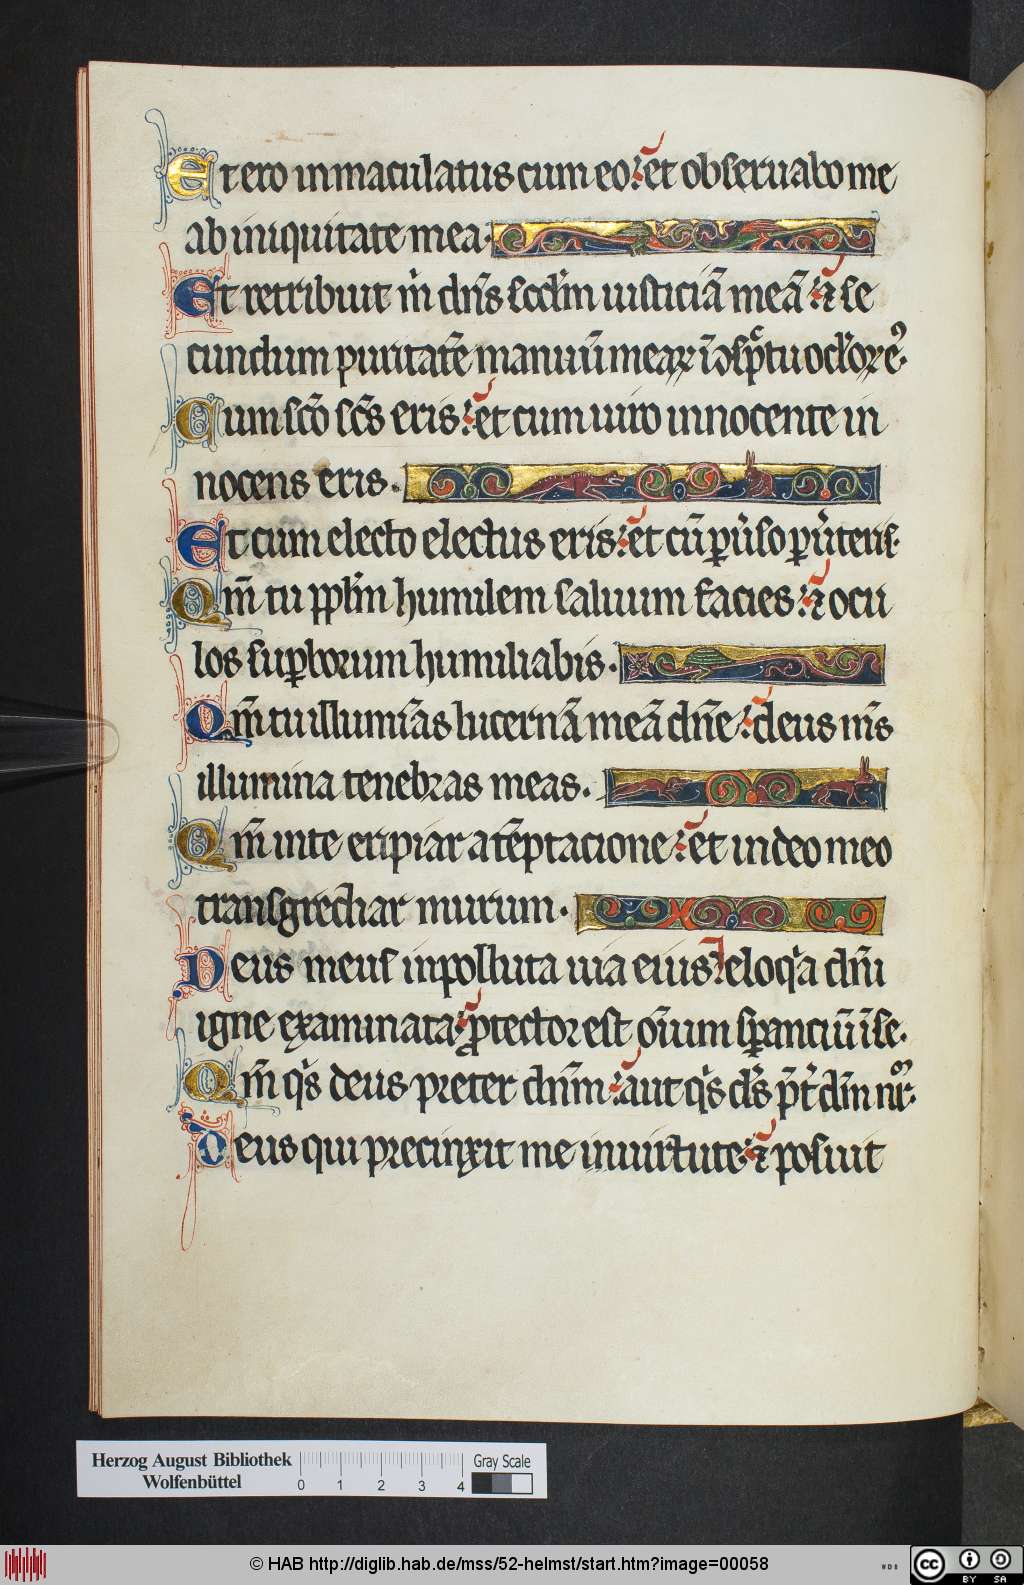 Et ero inmaculatus cum eo: et obseruabo me
ab iniquitate mea.
Et retribuit m̃ dñs scd̃m iusticiã meã: ⁊ se
cundum puritatẽ manuũ meaꝝ ĩ ↄspc̃tu oc̃lorũ eiꝰ.
Cum sc̃o sc̃s eris: et cum uiro innocente in
nocens eris.
Et cum electo electus eris: et cũ ꝑũso ꝑũteris.
Qm̃ tu ppl̃m humilem saluum facies: ⁊ ocu
los suꝑborum humiliabis.
Qm̃ tu illumĩas lucernã meã dñe: deus m̃s
illumina tenebras meas.
Qm̃ in te eripiar a tẽptacione: et in deo meo
transgrediar murum.
Deus meus inpolluta uia eius: eloq̃a dñi
igne examinata: ꝓtector est oĩum sꝑanciũ ĩ se.
Qm̃ q̃s deus preter dñm: aut q̃s d̃s p̃t̃ d̃m nr̃.
Deus qui precinxit me in uirtute: ⁊ posuit
Herzog August Bibliothek
Wolfenbüttel
0 1 2 3 4
Gray Scale
© HAB http://diglib.hab.de/mss/52-helmst/start.htm?image=00058
WDB
cc BY SA